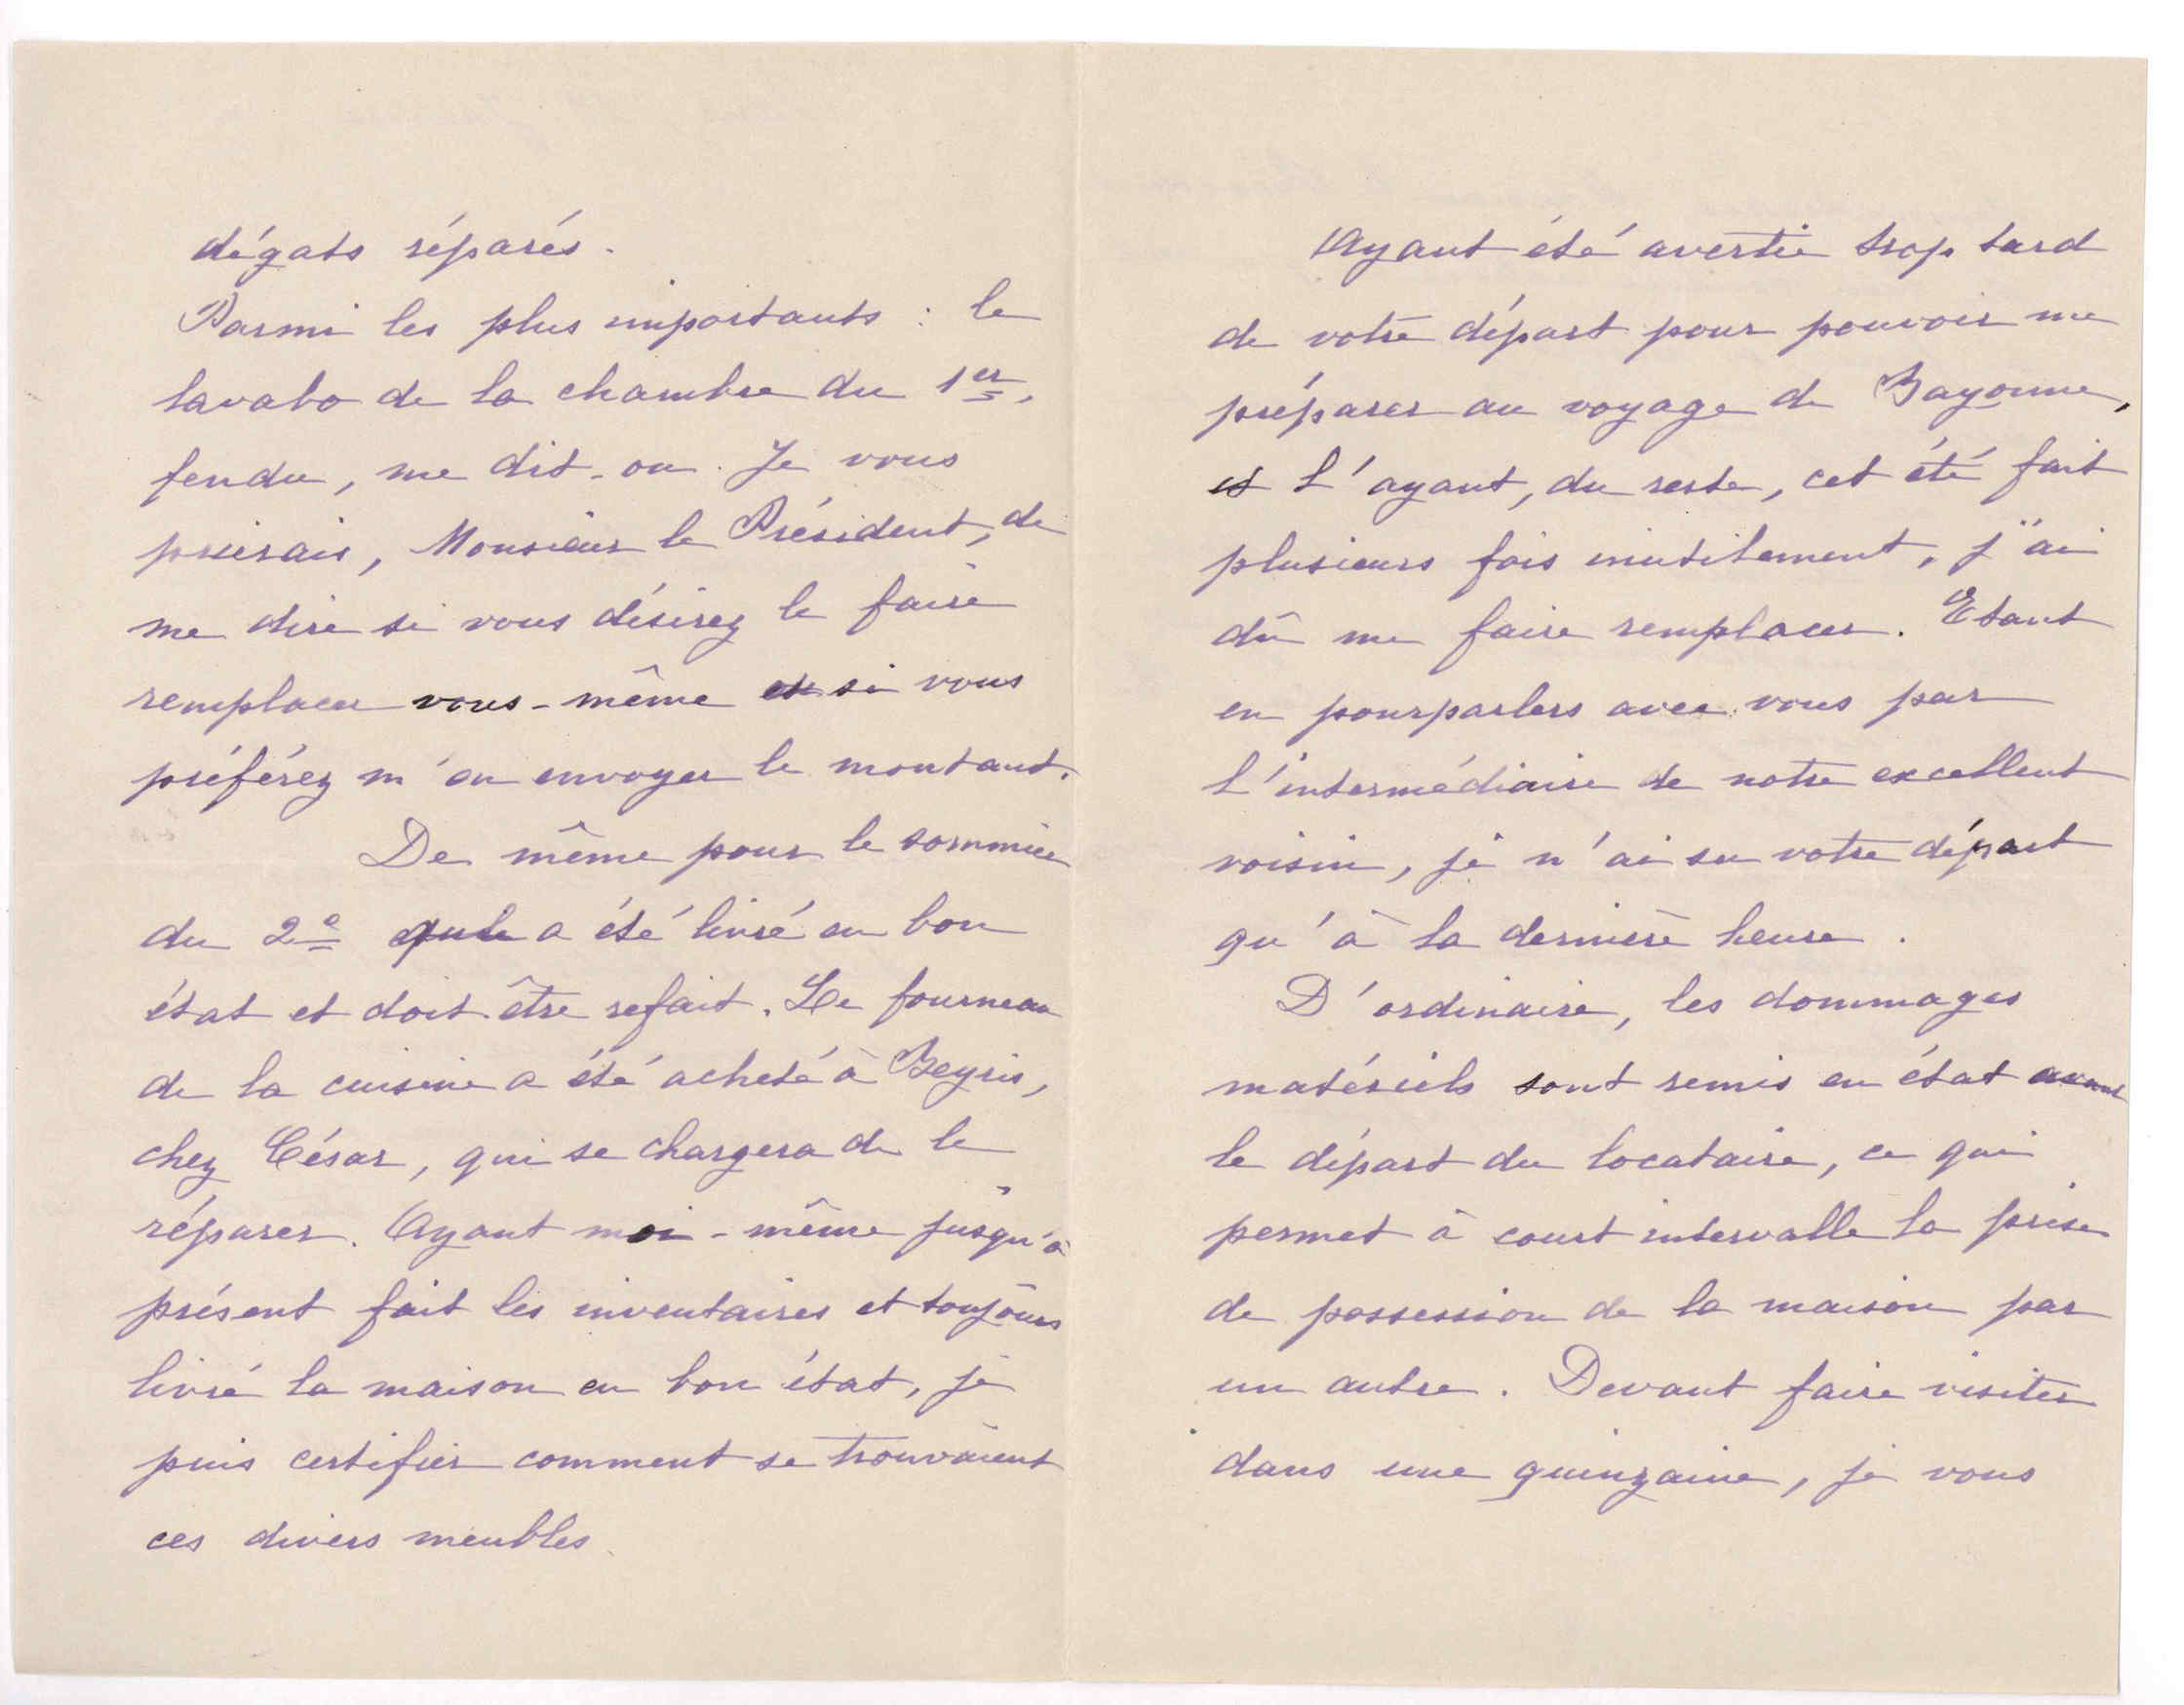 dégats réparés.
Parmi les plus importants : le
lavabo de la chambre du 1er,
fendu, me dit-on. Je vous
prierais, Monsieur le Président, de
me dire si vous désirez le faire
remplacer vous-même si vous
préférez m'en envoyer le montant.
De même pour le sommier
du 2e a été livré en bon
état et doit être refait. Le fourneau
de la cuisine a été acheté à Beyris,
chez César, qui se chargera de le
réparer. Ayant moi-même jusqu'à
présent fait les inventaires et toujours
livré la maison en bon état, je
puis certifier comment se trouvaient
ces divers meubles.
Ayant été avertie trop tard
de votre départ pour pouvoir me
préparer au voyage de Bayonne,
et l'ayant, du reste, cet été fait
plusieurs fois inutilement, j'ai
dû me faire remplacer. Etant
en pourparlers avec vous par
l'intermédiaire de notre excellent
voisin, je n'ai su votre départ
qu'à la dernière heure.
D'ordinaire, les dommages
matériels sont remis en état avant
le départ du locataire, ce qui
permet à court intervalle la prise
de possession de la maison par
un autre. Devant faire visiter
dans une quinzaine, je vous